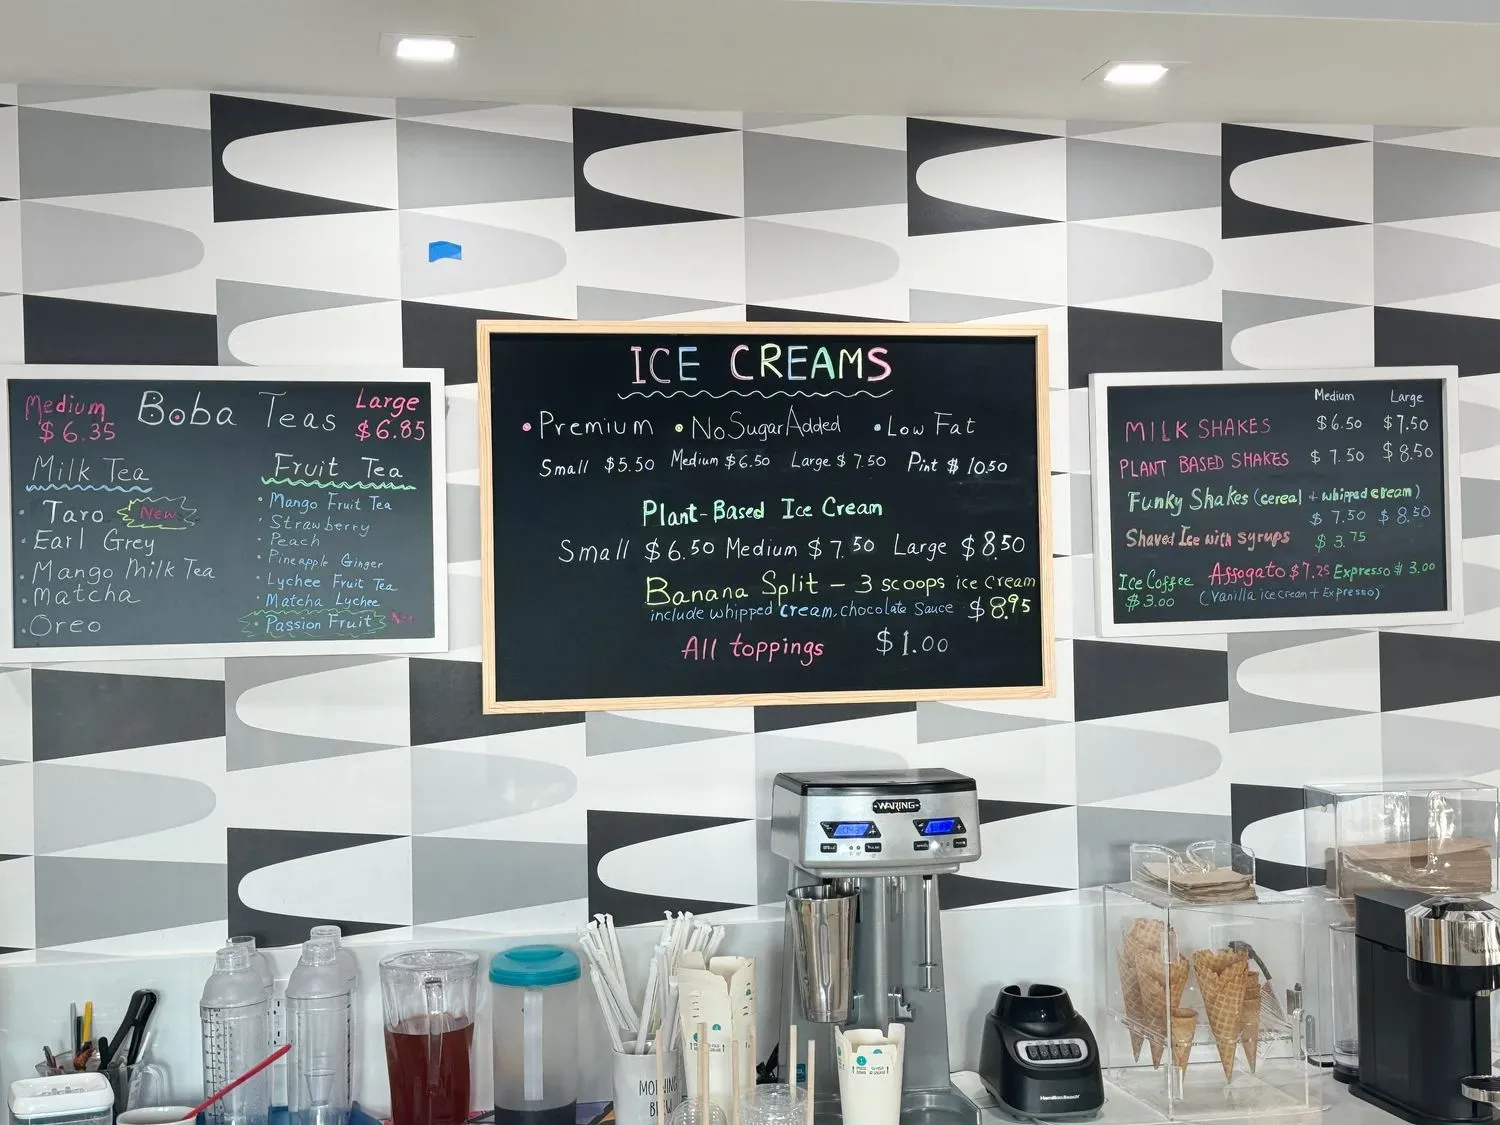 Medium Boba Teas Large
$6.35 $6.85
Milk Tea
Taro New
Earl Grey
Mango Milk Tea
Matcha
Oreo
Fruit Tea
Mango Fruit Tea
Strawberry
Peach
Pineapple Ginger
Lychee Fruit Tea
Matcha Lychee
Passion Fruit
ICE CREAMS
• Premium • No Sugar Added • Low Fat
Small $5.50 Medium $6.50 Large $7.50 Pint $10.50
Plant-Based Ice Cream
Small $6.50 Medium $7.50 Large $8.50
Banana Split - 3 scoops ice cream
include whipped cream, chocolate Sauce $8.95
All toppings $1.00
Medium Large
MILK SHAKES $6.50 $7.50
PLANT BASED SHAKES $7.50 $8.50
Funky Shakes (cereal + whipped cream)
$7.50 $8.50
Shaved Ice with syrups $3.75
Ice Coffee Affogato $7.25 Expresso $3.00
$3.00 (Vanilla ice cream + Expresso)
WARING
HamiltonBeach